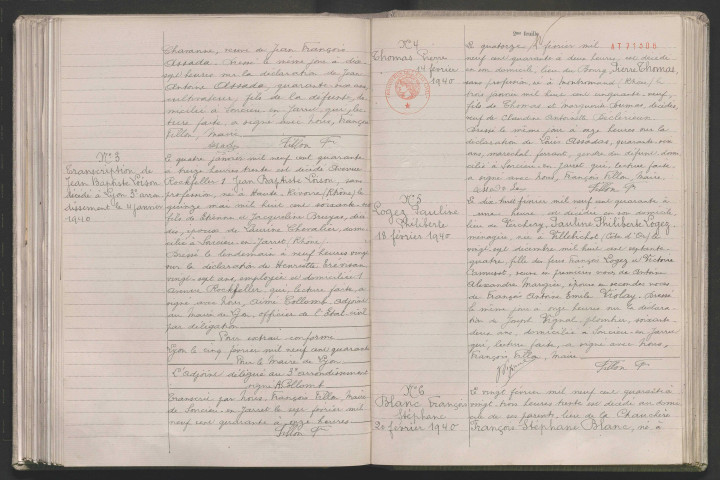 Chavanne, veuve de Jean François
Assada. Dressé le même jour à dix
sept heures sur la déclaration de Jean
Antoine Assada, quarante
cultivateur, fils de la défunte, do
micilié à Sorcieu-en-Jarret qui, lec
ture faite, a signé avec nous, François
Villa, Maire
Villon F.
N° 3
Transcription de
Jean Baptiste
décédé à Lyon 3e arron
dissement le 4 janvier
1940
Le quatre janvier mil neuf cent quarante
à treize heures trente est décédé Avenue
Rockfeller 2 Jean Baptiste sans
profession, né à Haute Rivoire (Rhône) le
quinze mai mil huit cent soixante
fils de Etienne et Jacqueline
époux de Chevalier, domi
cilié à Sorcieu-en-Jarret (Rhône).
Dressé le lendemain à neuf heures vingt
sur la déclaration de Henriette
vingt-sept ans, employée et domiciliée
avenue Rockfeller qui, lecture faite, a
signé avec nous, Aimé Collomb, adjoint
au maire de Lyon, officier de l'état civil
par délégation.
Pour extrait conforme
Lyon le cinq février mil neuf cent quarante
Pour le Maire de Lyon
L'adjoint délégué au 3e arrondissement
signé A. Collomb
Transcrit par nous, François Villa, Maire
de Sorcieu-en-Jarret le sept février mil
neuf cent quarante à onze heures
Villon F.
2me feuille
AT 71500
N° 4
Thomas Pierre
14 février
1940
Le quatorze février mil
neuf cent quarante à deux heures, est décédé
en son domicile, lieu du Bourg, Pierre Thomas,
sans profession, né à Montromand, Rhône, le
trois janvier mil huit cent cinquante-neuf,
fils de Thomas et décédés,
veuf de Claudine Antoinette
Dressé le même jour à onze heures sur la
déclaration de Louis Assadas, quarante
ans, maréchal ferrant, gendre du défunt, domi
cilié à Sorcieu-en-Jarret qui, lecture faite,
a signé avec nous, François Villa, Maire.
Villon F.
N° 5
Logez Pauline
Philiberte
18 février 1940
Le dix huit février mil neuf cent quarante à
une heure est décédée en son domicile
lieu de Pauline Philiberte Logez,
ménagère, née Villebichot (Côte d'Or) le
vingt-sept décembre mil huit cent septante
quatre, fille des feus François Logez et Victoire
veuve en premières noces de Antoine
Alexandre épouse en secondes noces
de François Antoine Emile Violay. Dressé
le même jour à onze heures sur la déclara
tion de Joseph Vignal, plombier, soixante
deux ans, domicilié à Sorcieu-en-Jarret
qui, lecture faite, a signé avec nous,
François Villa, Maire
Villon F.
N° 6
Blanc François
Stéphane
20 février 1940
Le vingt février mil neuf cent quarante à
vingt trois heures trente est décédé au domi
cile de ses parents, lieu de la
François Stéphane Blanc, né à